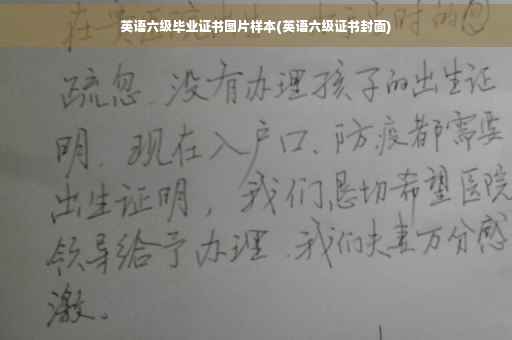 英语六级毕业证书图片样本(英语六级证书封面)
疏忽、没有办理孩子的出生证
明、现在入户口、防疫都需要
出生证明，我们恳切希望医院
领导给予办理、我们夫妻万分感
激。